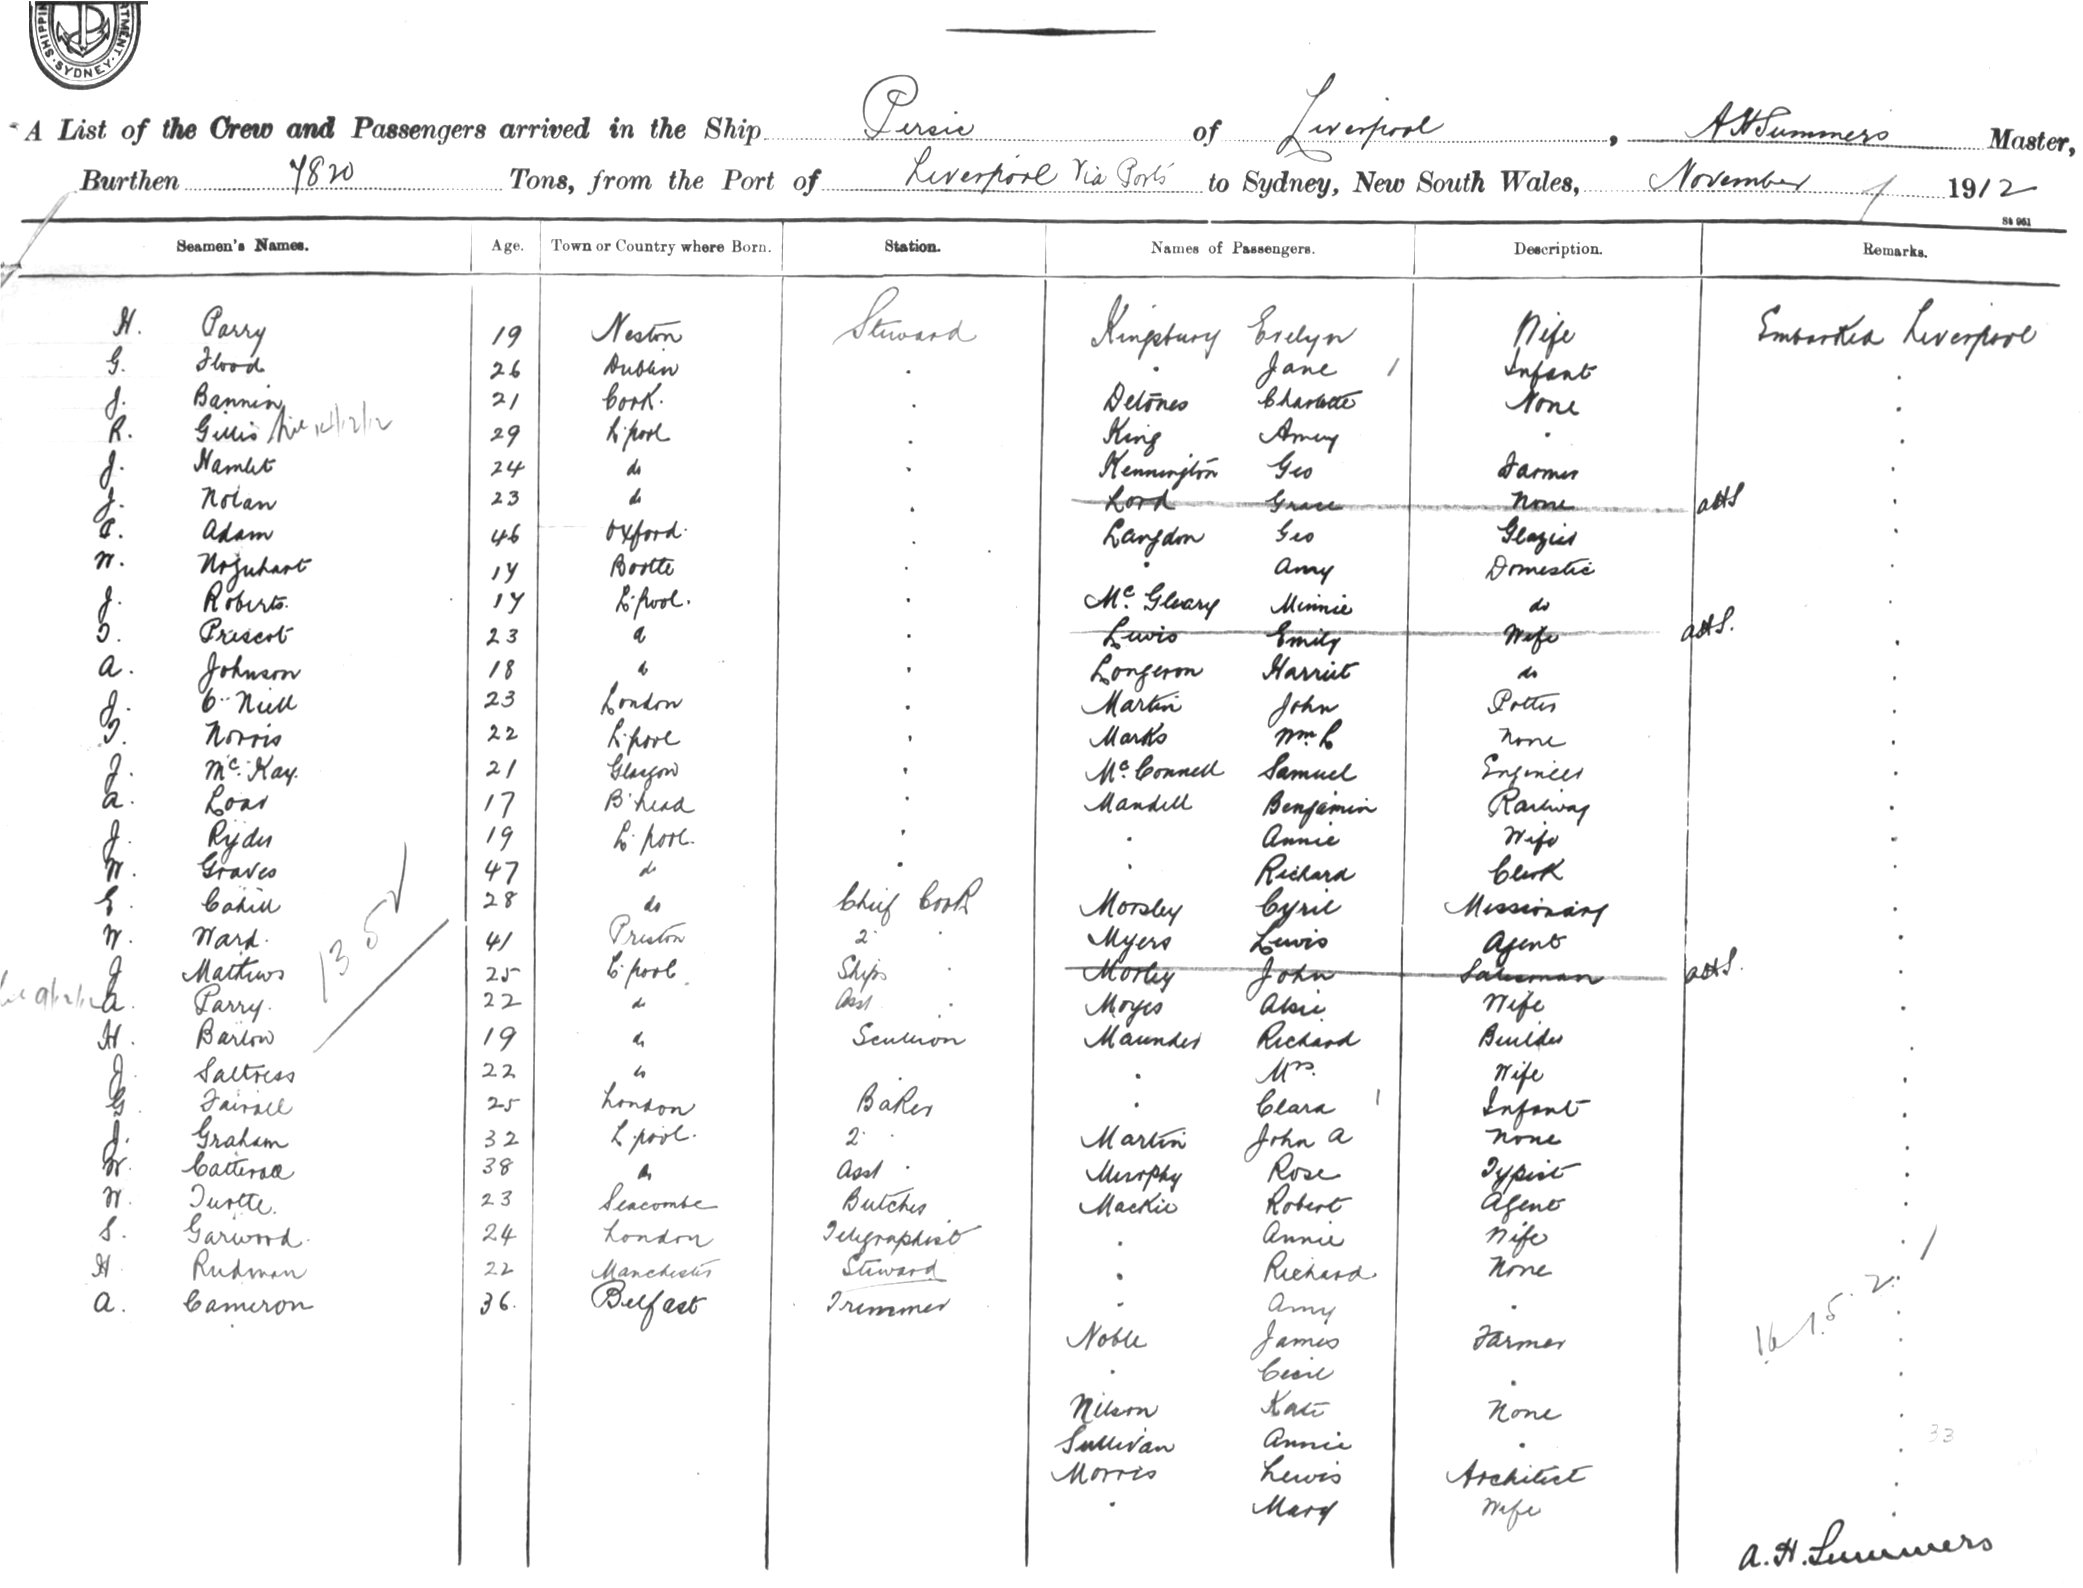 SHIPPING DEPARTMENT. SYDNEY.
A List of the Crew and Passengers arrived in the Ship Persic of Liverpool, A H Summers Master,
Burthen 7820 Tons, from the Port of Liverpool Via Ports to Sydney, New South Wales, November 1912
St 961
Seamen's Names. Age. Town or Country where Born. Station. Names of Passengers. Description. Remarks.
H. Parry 19 Neston Steward Kingsbury Evelyn Wife Embarked Liverpool
G. Flood 26 Dublin " Jane 1 Infant "
J. Bannin 21 Cork. " Delönes Charlotte None "
R. Gillis 14/12/12 29 L'pool " King Amey " "
J. Hamlet 24 do " Kennington Geo Farmer "
J. Nolan 23 do " Lord Grace None AHS "
Adam 46 Oxford. " Langdon Geo Glazier "
W. 17 Bootle " " Amy Domestic "
J. Roberts. 17 L'pool. " Mc. Gleary Minnie do "
T. Prescot 23 do " Lewis Emily Wife AHS. "
A. Johnson 18 do " Longeron Harriet do "
J. O'Niell 23 London " Martin John Potter "
T. Norris 22 L'pool " Marks Wm L None "
J. Mc. Kay. 21 Glasgow " Mc. Connell Samuel Engineer "
A. Loar 17 B'head " Mandell Benjamin Railway "
J. Ryder 19 L'pool. " " Annie Wife "
W. Graves 47 do " " Richard Clerk "
E. Cahill 28 do Chief Cook Morsley Cyril Missionary "
W. Ward. 41 Preston 2 " Myers Lewis Agent "
J. Mathews 25 L'pool. Ships " Morley John Salesman AHS. "
9/12/12 A. Parry. 22 do Asst " Moyes Alsie Wife "
H. Barlow 19 do Scullion Maunder Richard Builder "
J. Saltress 22 do " " Mrs. Wife "
G. Fairall 25 London Baker " Clara 1 Infant "
J. Graham 32 L'pool. 2 " Martin John A None "
W. Catterall 38 do Asst " Murphy Rose Typist "
W. Turtle. 23 Seacombe Butcher Mackie Robert Agent "
S. Garwood. 24 London Telegraphist " Annie Wife "
H Rudman 22 Manchester Steward " Richard None "
A. Cameron 36. Belfast Trimmer " Amy " "
Noble James Farmer "
" Cecil " "
Nilson Kate None "
Sullivan Annie " " 33
Morris Lewis Architect "
" Mary Wife "
A. H. Summers